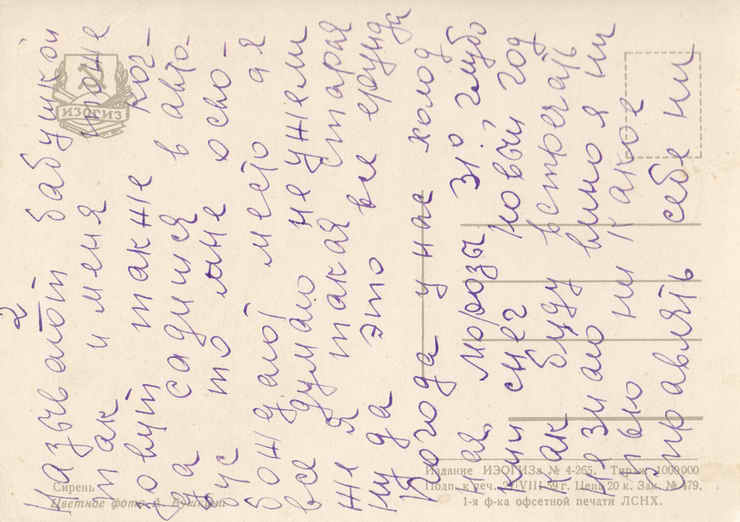 2
называют бабушкой
так и меня тоже
зовут также ког-
да садишся в авто-
бус то мне осво-
бождают место а я
все думаю неужели
же я такая старая
ну да это все ерунда
Погода у нас холод
ная, морозы 31°, глубо
кий снег новый год
как буду встречать
незнаю вино я ни
пью ни какое
отравлять себе ни
ИЗОГИЗ
Сирень
Цветное фото
Издание ИЗОГИЗа № 4-265. Тираж 1000000
Подп. к печ. VIII-59 г. Цена 20 к. Зак. № 479.
1-я ф-ка офсетной печати ЛСНХ.